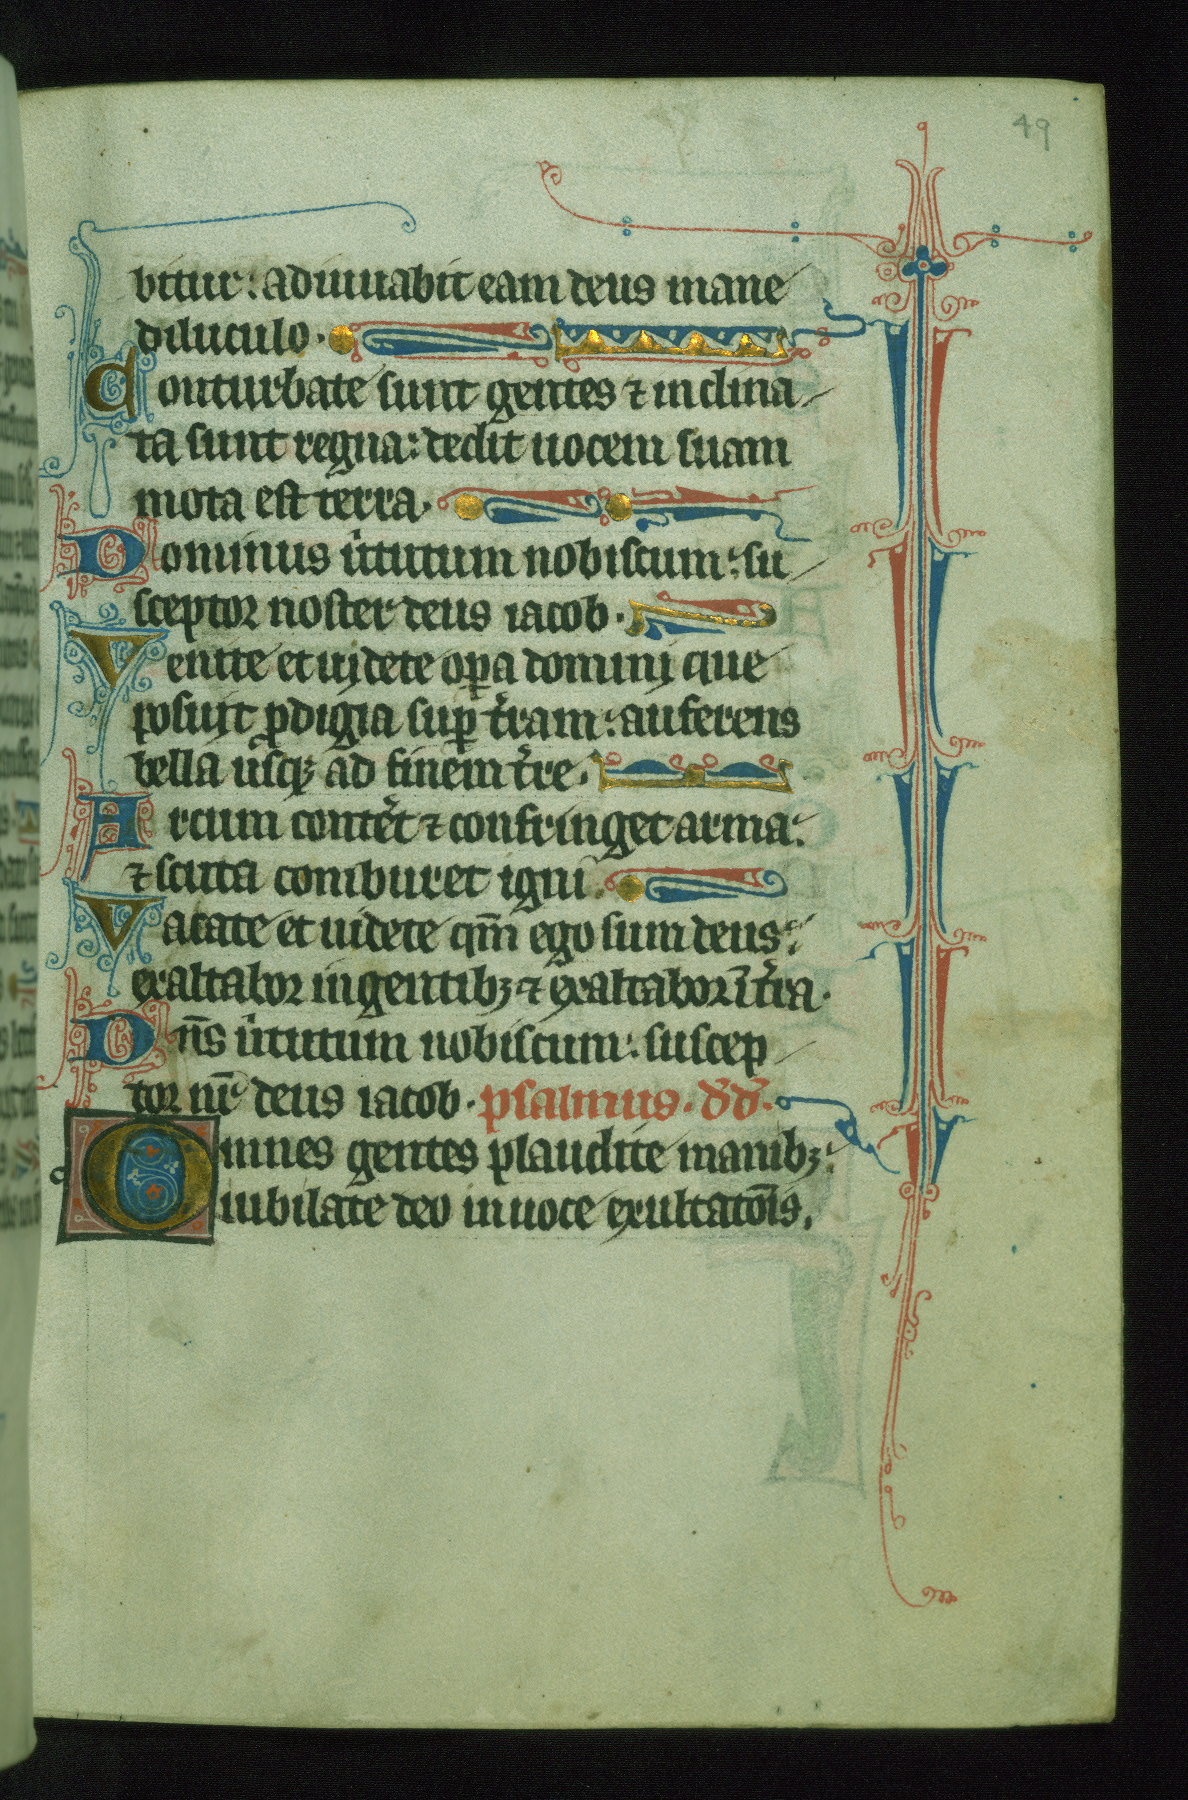 49
bitur: adiuuabit eam deus mane
diluculo.
Conturbate sunt gentes ⁊ inclina
ta sunt regna: dedit uocem suam
mota est terra.
Dominus ũtutum nobiscum: su
sceptor noster deus iacob.
Uenite et uidete oꝑa domini que
posuit ꝓdigia suꝑ t̃ram: auferens
bella usqꝫ ad finem t̃re.
Arcum contẽt ⁊ confringet arma:
⁊ scuta comburet igni.
Uacate et uidete qm̃ ego sum deus:
exaltabor in gentibꝫ ⁊ exaltabor ĩ t̃ra.
Dñs ũtutum nobiscum: suscep
tor nr̃ deus iacob. psalmus. dd̃.
Omnes gentes plaudite manibꝫ:
iubilate deo in uoce exultatõis.